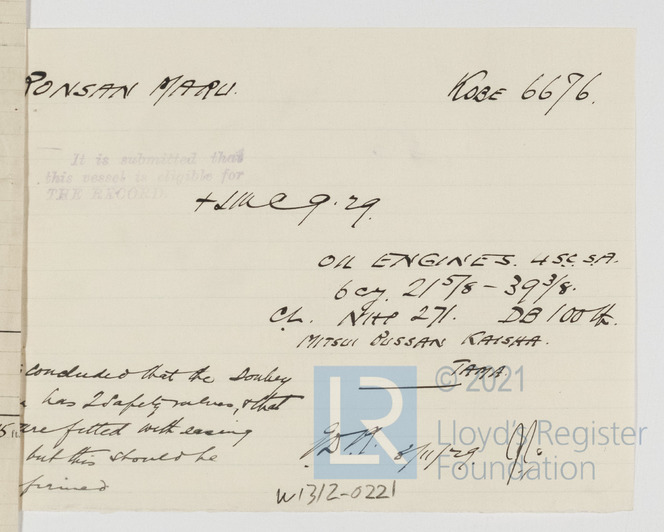 RONSAN MARU.
KOBE 6676.
It is submitted that
this vessel is eligible for
THE RECORD.
+ LMC 9.29.
OIL ENGINES. 4SC. SA.
6 cy. 21 5/8 - 39 3/8.
CL. NHP 271. DB 100 lb.
MITSUI BUSSAN KAISHA.
TAMA.
concluded that the Donkey
has 2 Safety valves, & that
are fitted with easing
but this should be
firmed
8/11/29
W1312-0221
LR
© 2021
Lloyd's Register
Foundation